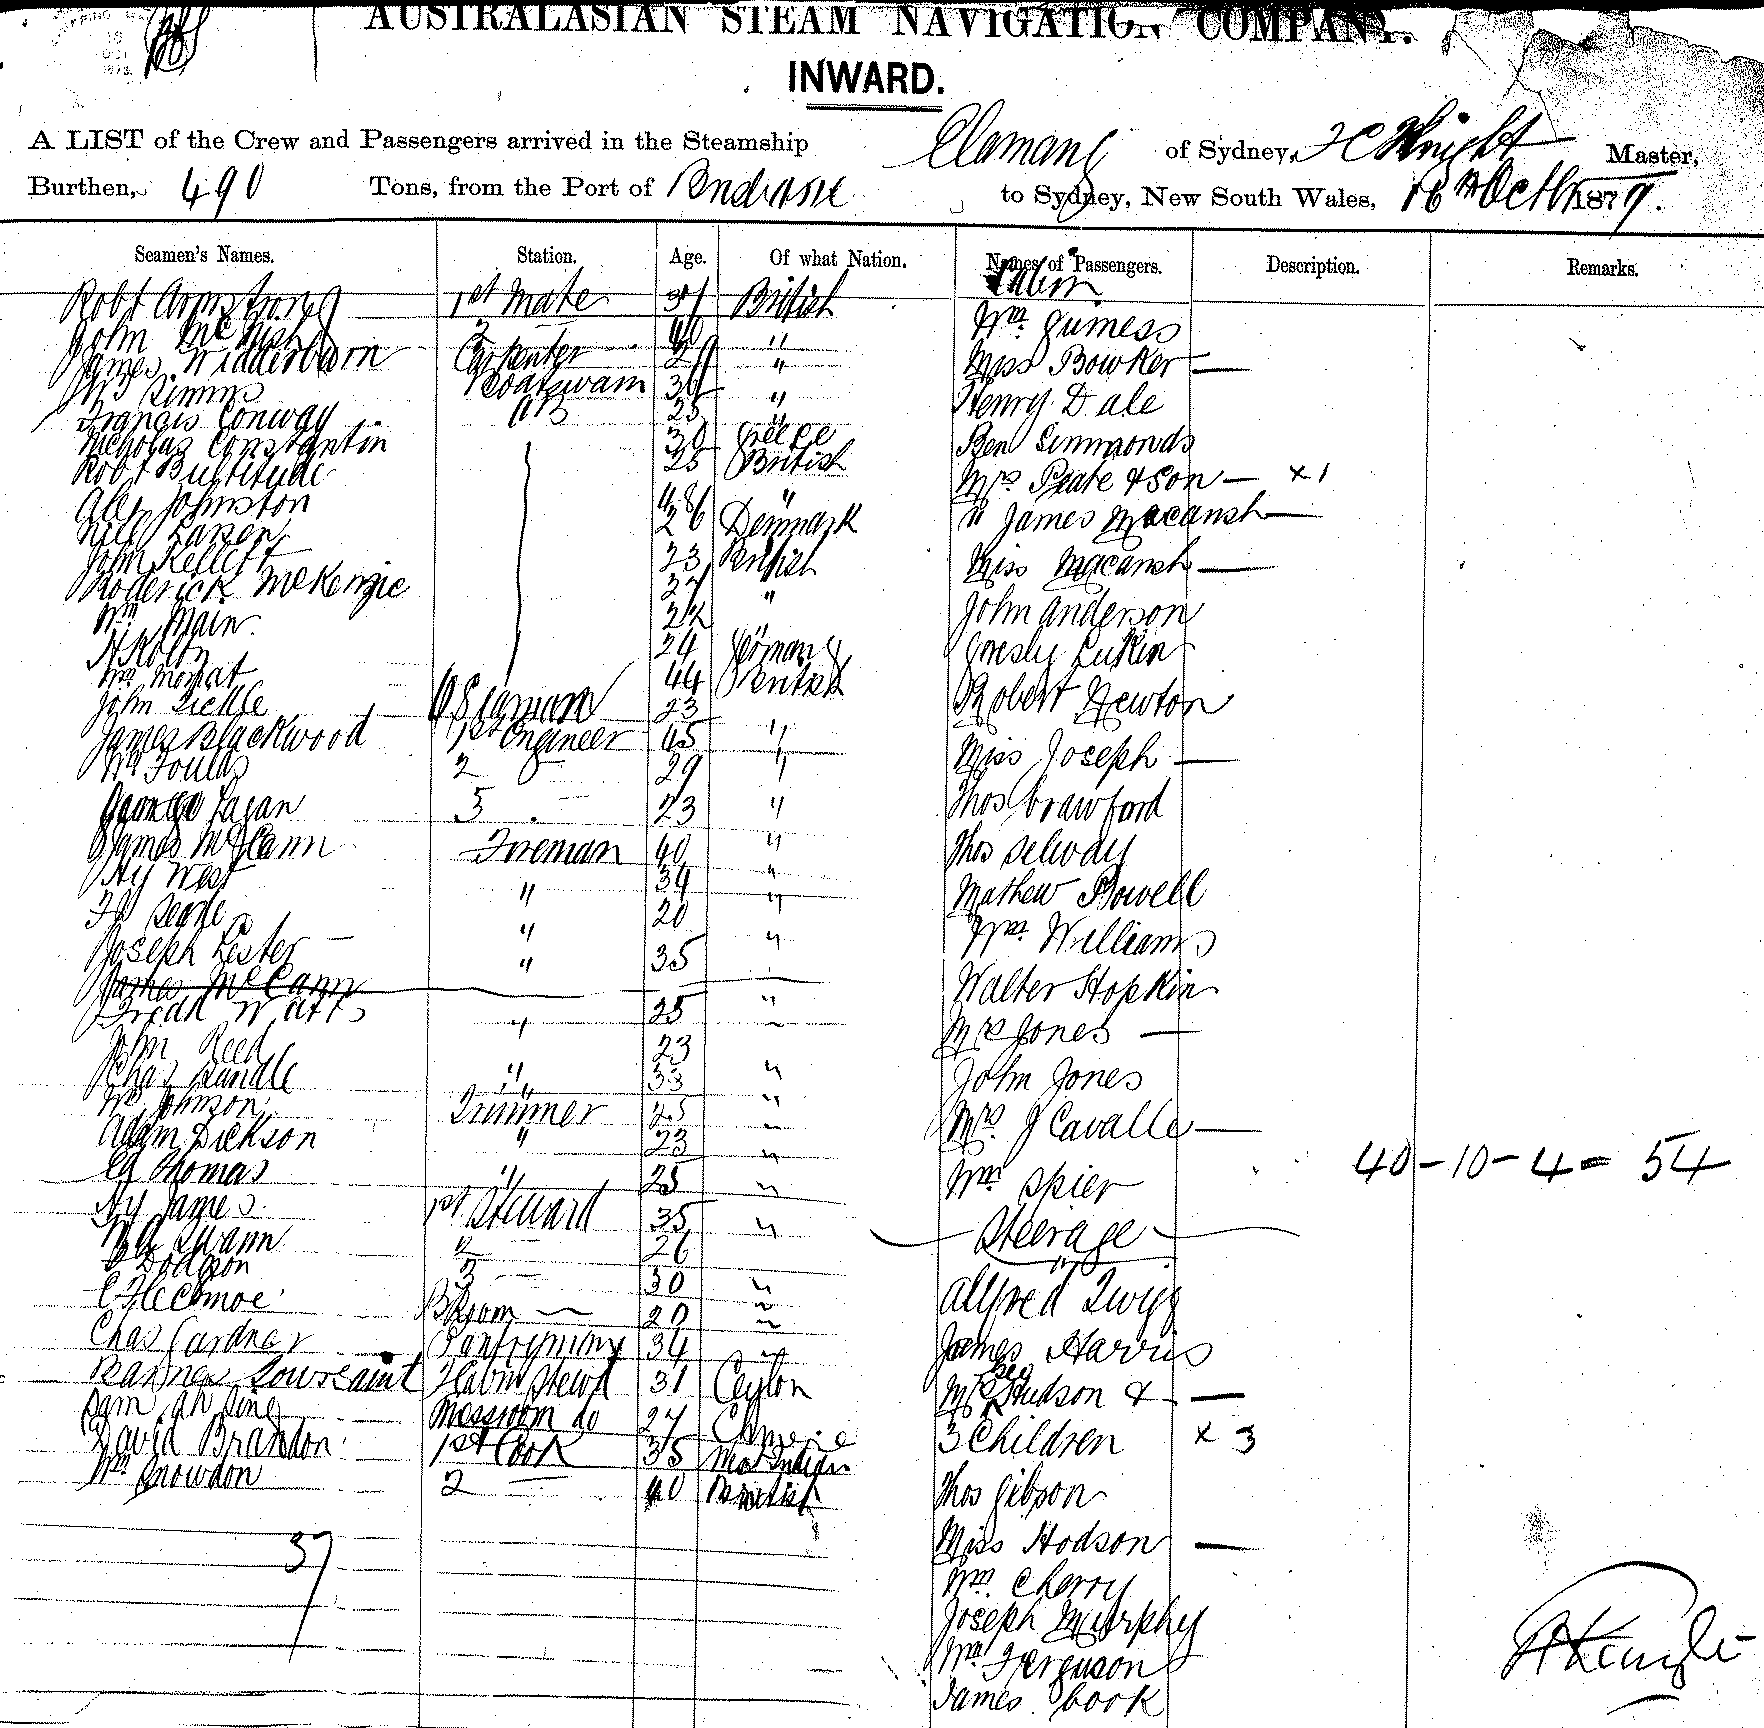 AUSTRALASIAN STEAM NAVIGATION COMPANY.
INWARD.
A LIST of the Crew and Passengers arrived in the Steamship Elamang of Sydney, Knight Master,
Burthen, 490 Tons, from the Port of Brisbane to Sydney, New South Wales, 16th Octbr 1879.
Seamen's Names. Station. Age. Of what Nation. Names of Passengers. Description. Remarks.
Cabin
Robt Armstrong 1st Mate British
John McNish 2 40 "
James Widderburn Carpenter "
Simms Boatswain "
Francis Conway AB 25
Nicholas Constantin 30 Greece
Robt Bultitude 25 British
Alex Johnston 48 "
Larsen 26 Denmark
John Kellett 23 British
Roderick McKenzie "
Wm Main
24 Germany
Wm Moffat 44 British
John Sickle O Seaman 23
James Blackwood 1st Engineer 45 "
Wm Foulds 2 29 "
George Fagan 3 23 "
James McCann Fireman 40 "
Hy West " 34 "
" 20 "
Joseph Lester " 35 "
James McCann
Fredk Watts " 25 "
John Reed 23
Chas Randle " 33 "
Wm Johnson Trimmer 25 "
Adam Dickson " 23 "
Thomas " 25 "
Hy James 1st Steward 35 "
Swann 2 26
Dodson 3 30 "
20 "
Chas Gardner Pantryman 34 "
Toussaint F Cabin Stewd 31 Ceylon
Sam Ah Sing Messroom do 27 Chinese
David Brandon 1st Cook 35
Wm Snowdon 2 40 British
37
Wm Guiness
Miss Bowker —
Henry Dale
Ben Simmonds
Mrs Peate & Son — x 1
" James Macansh —
Miss Macansh —
John Anderson
Gresly Lukin
Robert Newton
Miss Joseph —
Thos Crawford
Thos Selway
Mathew Powell
Wm Williams
Walter Hopkin
Mrs Jones —
John Jones
Mrs J Cavalle —
Wm Spier
40 - 10 - 4 = 54
Steerage
Alfred Twigg
James Harris
Mrs Geo Hudson & —
3 Children x 3
Thos Gibson
Miss Hodson —
Wm Cherry
Joseph Murphy
Wm Ferguson
James Cook